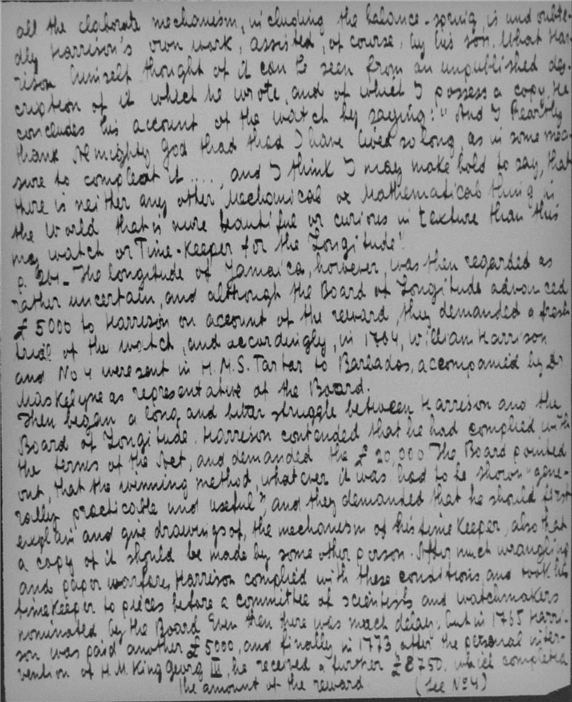 all the elaborate mechanism, including the balance-spring, is undoubte-
dly Harrison's own work, assisted, of course, by his son. What Har-
rison himself thought of it can be seen from an unpublished des-
cription of it which he wrote, and of which I possess a copy. He
concludes his account of the watch by saying: "And I heartily
thank Almighty God that had I have lived so long, as in some mea-
sure to compleat it...., and I think I may make bold to say, that
there is neither any other Mechanical or Mathematical thing in
the World that is more beautiful or curious in texture than this
my watch or Time-Keeper for the Longitude".
p. 24 - The longitude of Jamaica, however, was then regarded as
rather uncertain, and although the Board of Longitude advanced
£ 5000 to Harrison on account of the reward, they demanded a fresh
trial of the watch, and accordingly, in 1764, William Harrison
and No 4 were sent in H.M.S. Tartar to Barbados, accompanied by Dr
Maskelyne as representative of the Board.
Then began a long and bitter struggle between Harrison and the
Board of Longitude. Harrison contended that he had complied with
the terms of the Act, and demanded the £ 20,000. The Board pointed
out, that the winning method, whatever it was had to be shown "gene-
rally practicable and useful", and they demanded that he should first
explain and give drawings of, the mechanism of his time Keeper, also that
a copy of it should be made by some other person. After much wrangling
and paper warfare, Harrison complied with these conditions, and took his
timeKeeper to pieces before a committee of scientists and watchmakers
nominated by the Board. Even then there was much delay, but in 1765 Harri-
son was paid another £ 5000, and finally in 1773 after the personal inter-
vention of H.M. King Georg III, he received a further £ 8750, which completed
the amount of the reward. (See No 4)